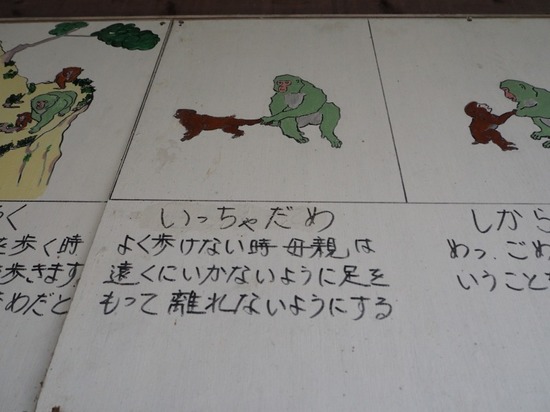 く
を歩く時
歩きます
めだと
いっちゃだめ
よく歩けない時 母親は
遠くにいかないように足を
もって離れないようにする
しから
めっ.ごめ
いうことを